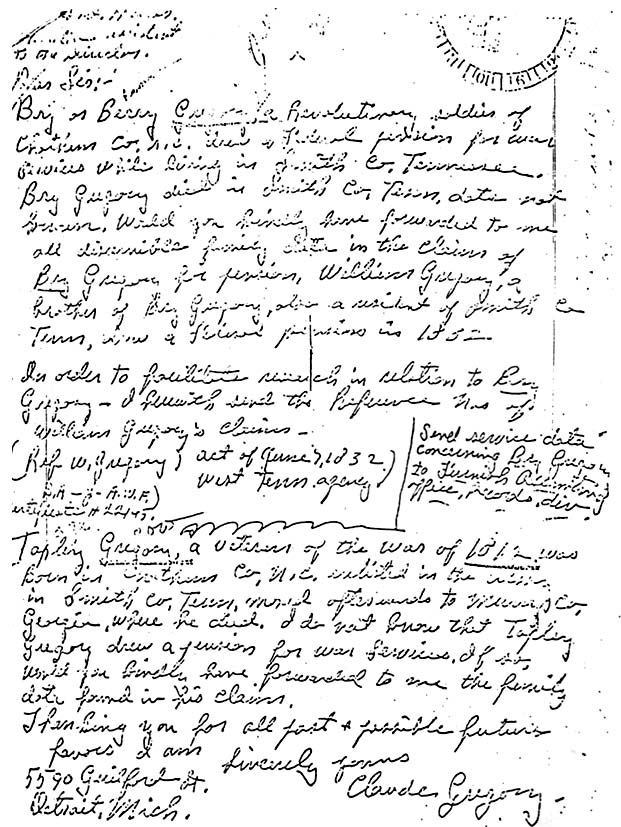 to the Director.
Dear Sir:-
Bry or Berry Gregory, a Revolutionary soldier of
Chatham Co., N.C. drew a Federal pension for war
services while living in Smith Co. Tennessee.
Bry Gregory died in Smith Co, Tenn, date not
known. Would you kindly have forwarded to me
all discernible family data in the claims of
Bry Gregory for pension, William Gregory, a
brother of Bry Gregory, also a resident of Smith Co
Tenn, drew a Federal pension in 1832
In order to facilitate research in relation to Bry
Gregory - I herewith send the Reference Nos of
William Gregory's claims -
(Ref W. Gregory) act of (June 7, 1832)
West Tenn. agency
Send service data
concerning Bry Gregory
to Furnish Accounting
Office, records, div.
Tapley Gregory, a veteran of the war of 1812 was
born in Chatham Co, N.C. enlisted in the army
in Smith Co, Tenn, moved afterwards to Murray Co,
Georgia, where he died. I do not know that Tapley
Gregory drew a pension for war services. If so,
would you kindly have forwarded to me the family
data found in his claims.
Thanking you for all past + possible future
favors I am
Sincerely yours
5590 Guilford St.
Claude Gregory -
Detroit, Mich.